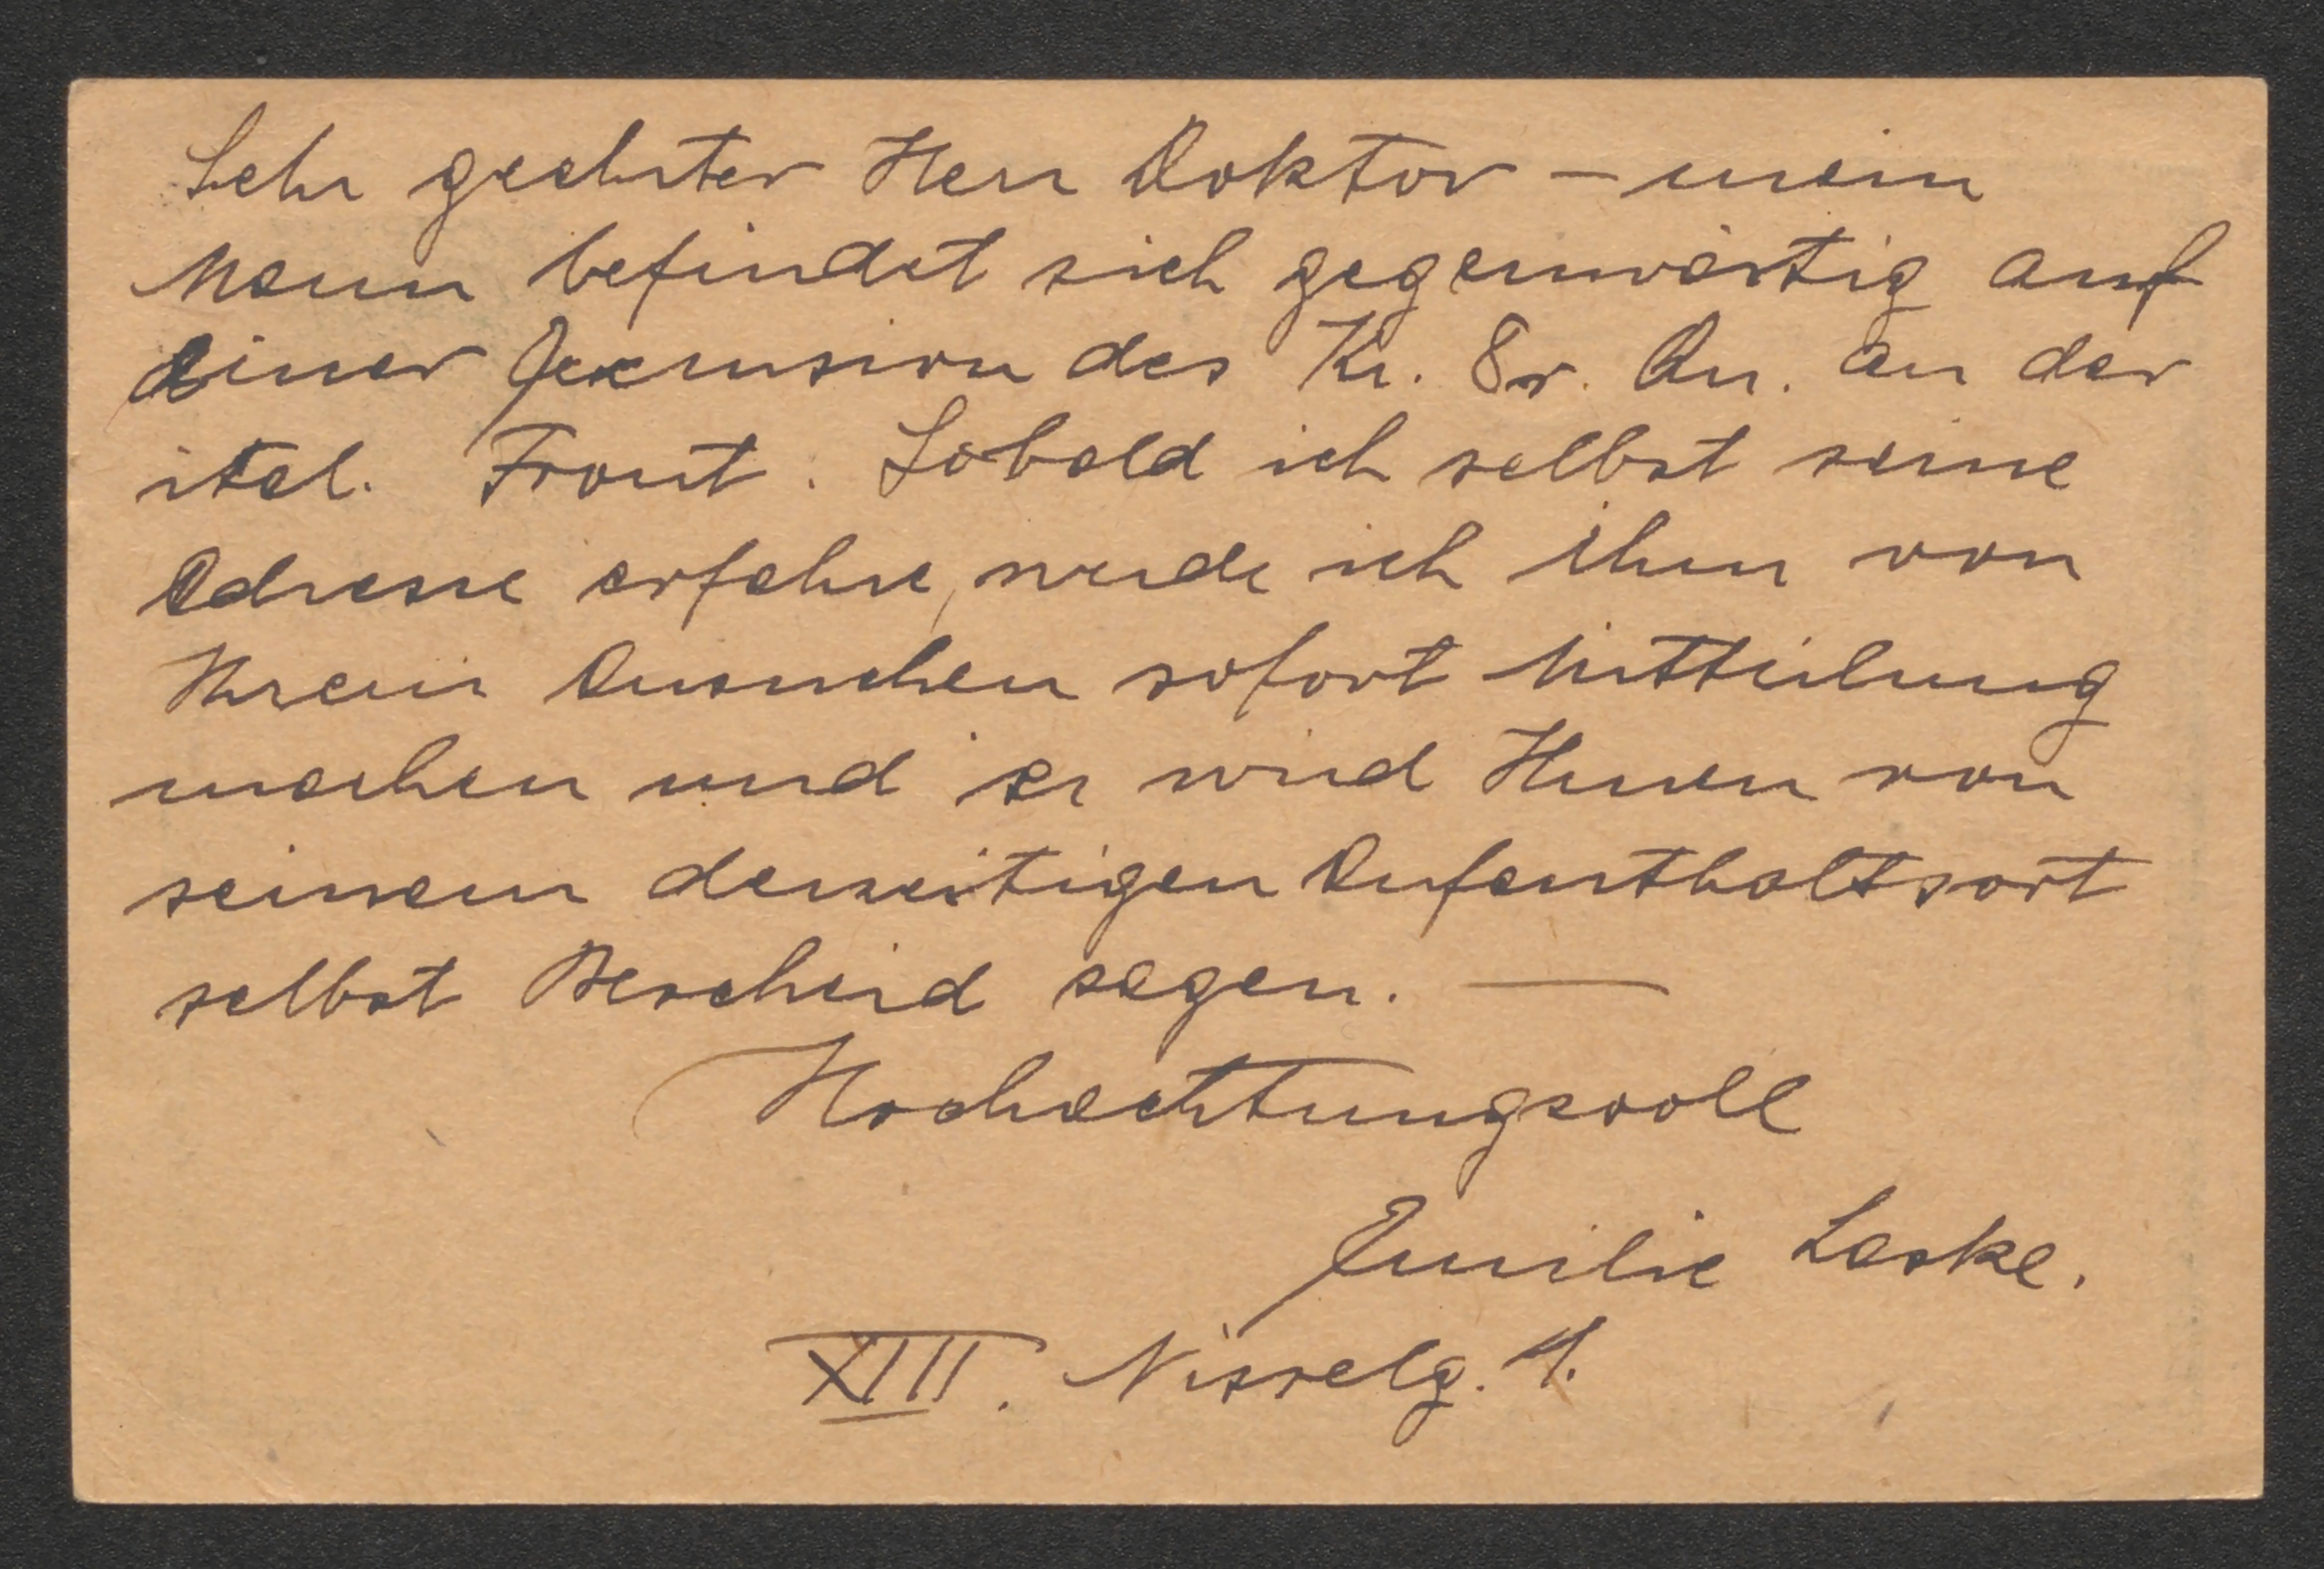 Sehr geehrter Herr Doktor – mein
Mann befindet sich gegenwärtig auf
einer Exkursion des Kr. Pr. Qu. an der
ital. Front. Sobald ich selbst seine
Adresse erfahre, werde ich ihm von
Ihrem Ansuchen sofort Mitteilung
machen und er wird Ihnen von
seinem derzeitigen Aufenthaltsort
selbst Bescheid sagen. —
Hochachtungsvoll
Emilie Laske.
XIII. Nisselg. 1.